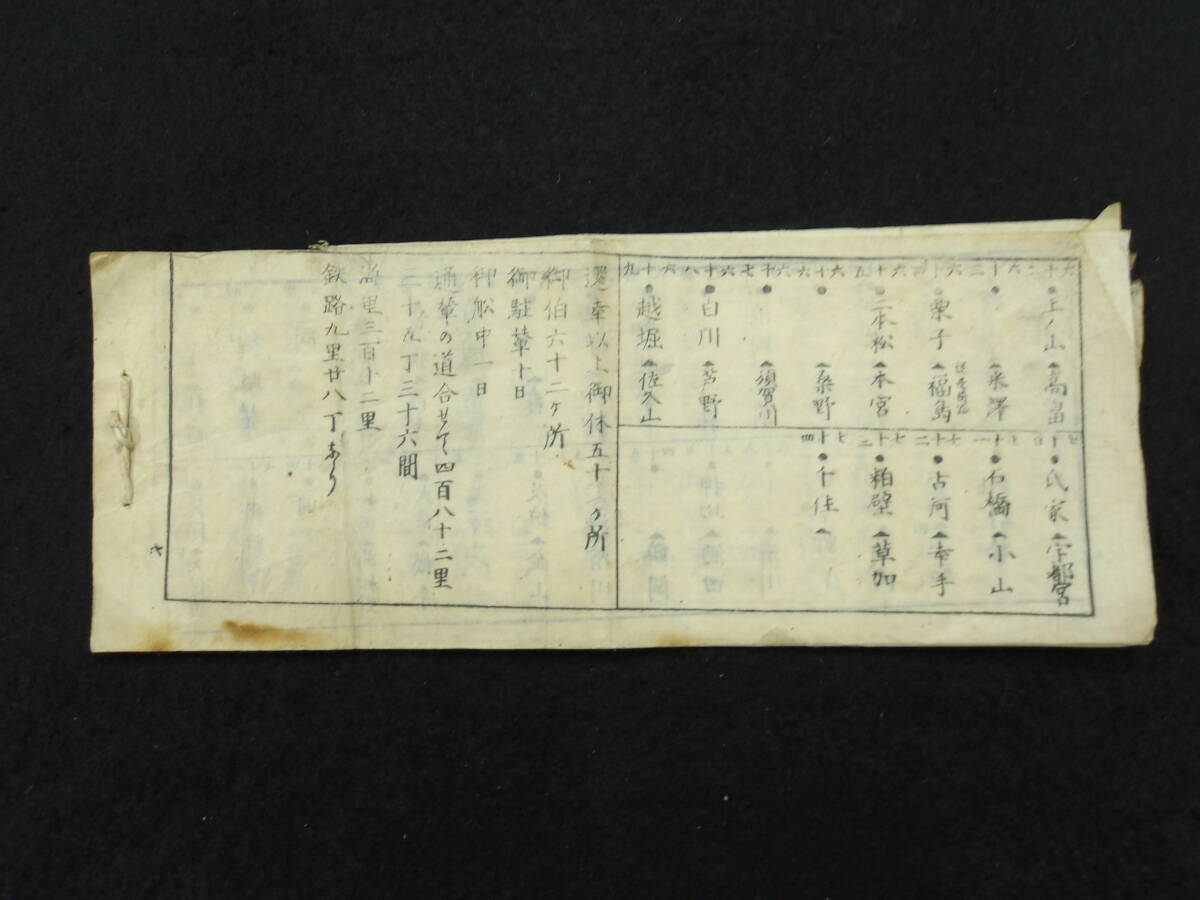 六十一 ●上ノ山 ▲高畠
六十二 ● ▲米澤
六十三 ●栗子 ▲福島
六十五 ●二本松 ▲本宮
六十六 ● ▲桑野
六十七 ● ▲須賀川
六十八 ●白川 ▲芦野
六十九 ●越堀 ▲佐久山
七十 ●氏家 ▲宇都宮
七十一 ●石橋 ▲小山
七十二 ●古河 ▲幸手
七十三 ●粕壁 ▲草加
七十四 ●千住 ▲
還幸以上御休五十ヶ所
御泊六十二ヶ所
御駐輦十日
御舩中一日
通輦の道合せて四百八十二里
三十五丁三十六間
海里三百十二里
鉄路九里廿八丁あり
六